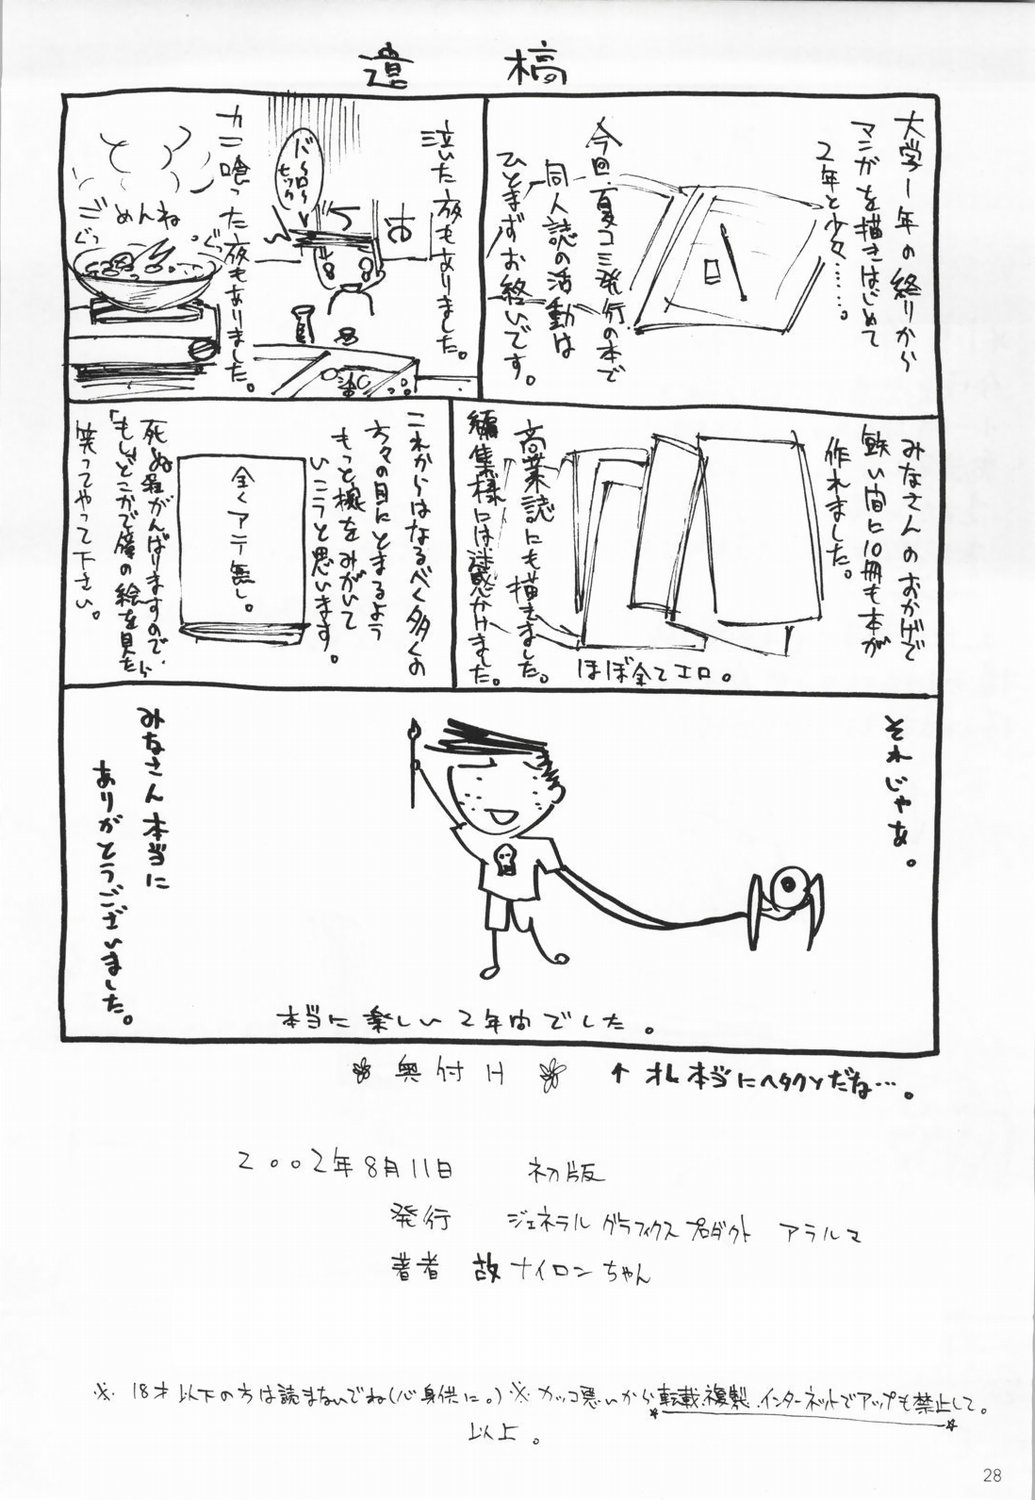 遺稿
大学1年の終りから
マンガを描きはじめて
2年と少々……。
今回、夏コミ発行の本で
同人誌の活動は
ひとまずお終いです。
泣いた夜もありました。
バーローヒック
カニ喰った夜もありました。
ごめんね
ぐつ
ぐつ
みなさんのおかげで
短い間に10冊も本が
作れました。
商業誌にも描きました。
編集様には迷惑かけました。
ほぼ全てエロ。
これからはなるべく多くの
方々の目にとまるよう
もっと腕をみがいて
いこうと思います。
全くアテ無し。
死ぬ程がんばりますので、
「もしどこかで僕の絵を見たら
笑ってやって下さい。
それじゃあ。
みなさん本当に
ありがとうございました。
本当に楽しい2年間でした。
奥付け
↑オレ本当にヘタクソだね…。
2002年8月11日 初版
発行 ジェネラルグラフィクスプロダクト アラルマ
著者 故ナイロンちゃん
※18才以下の方は読まないでね(心身供に。)※カッコ悪いから転載、複製、インターネットでアップも禁止して。
以上。
28